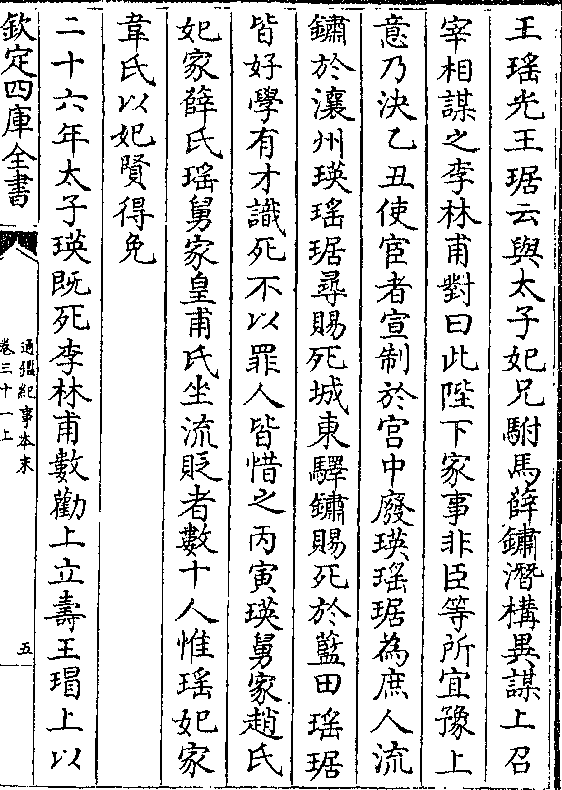 王瑤光王琚云與太子妃兄駙馬薛鏽潛構異謀上召
宰相謀之李林甫對曰此陛下家事非臣等所宜豫上
意乃決乙丑使宦者宣制於宫中廢瑛瑤琚為庶人流
鏽於瀼州瑛瑤琚尋賜死城東驛鏽賜死於藍田瑤琚
皆好學有才識死不以罪人皆惜之丙寅瑛舅家趙氏
妃家薛氏瑤舅家皇甫氏坐流貶者數十人惟瑤妃家
韋氏以妃賢得免
二十六年太子瑛既死李林甫數勸上立壽王瑁上以
欽定四庫全書
通鑑紀事本末
卷三十一上
五